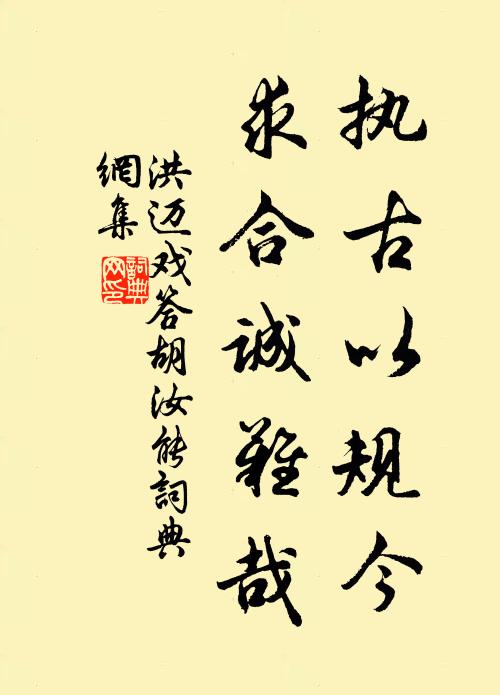 执古以规今
求合诚难哉
洪迈戏答胡汝能詞典
網集
詞典
网印